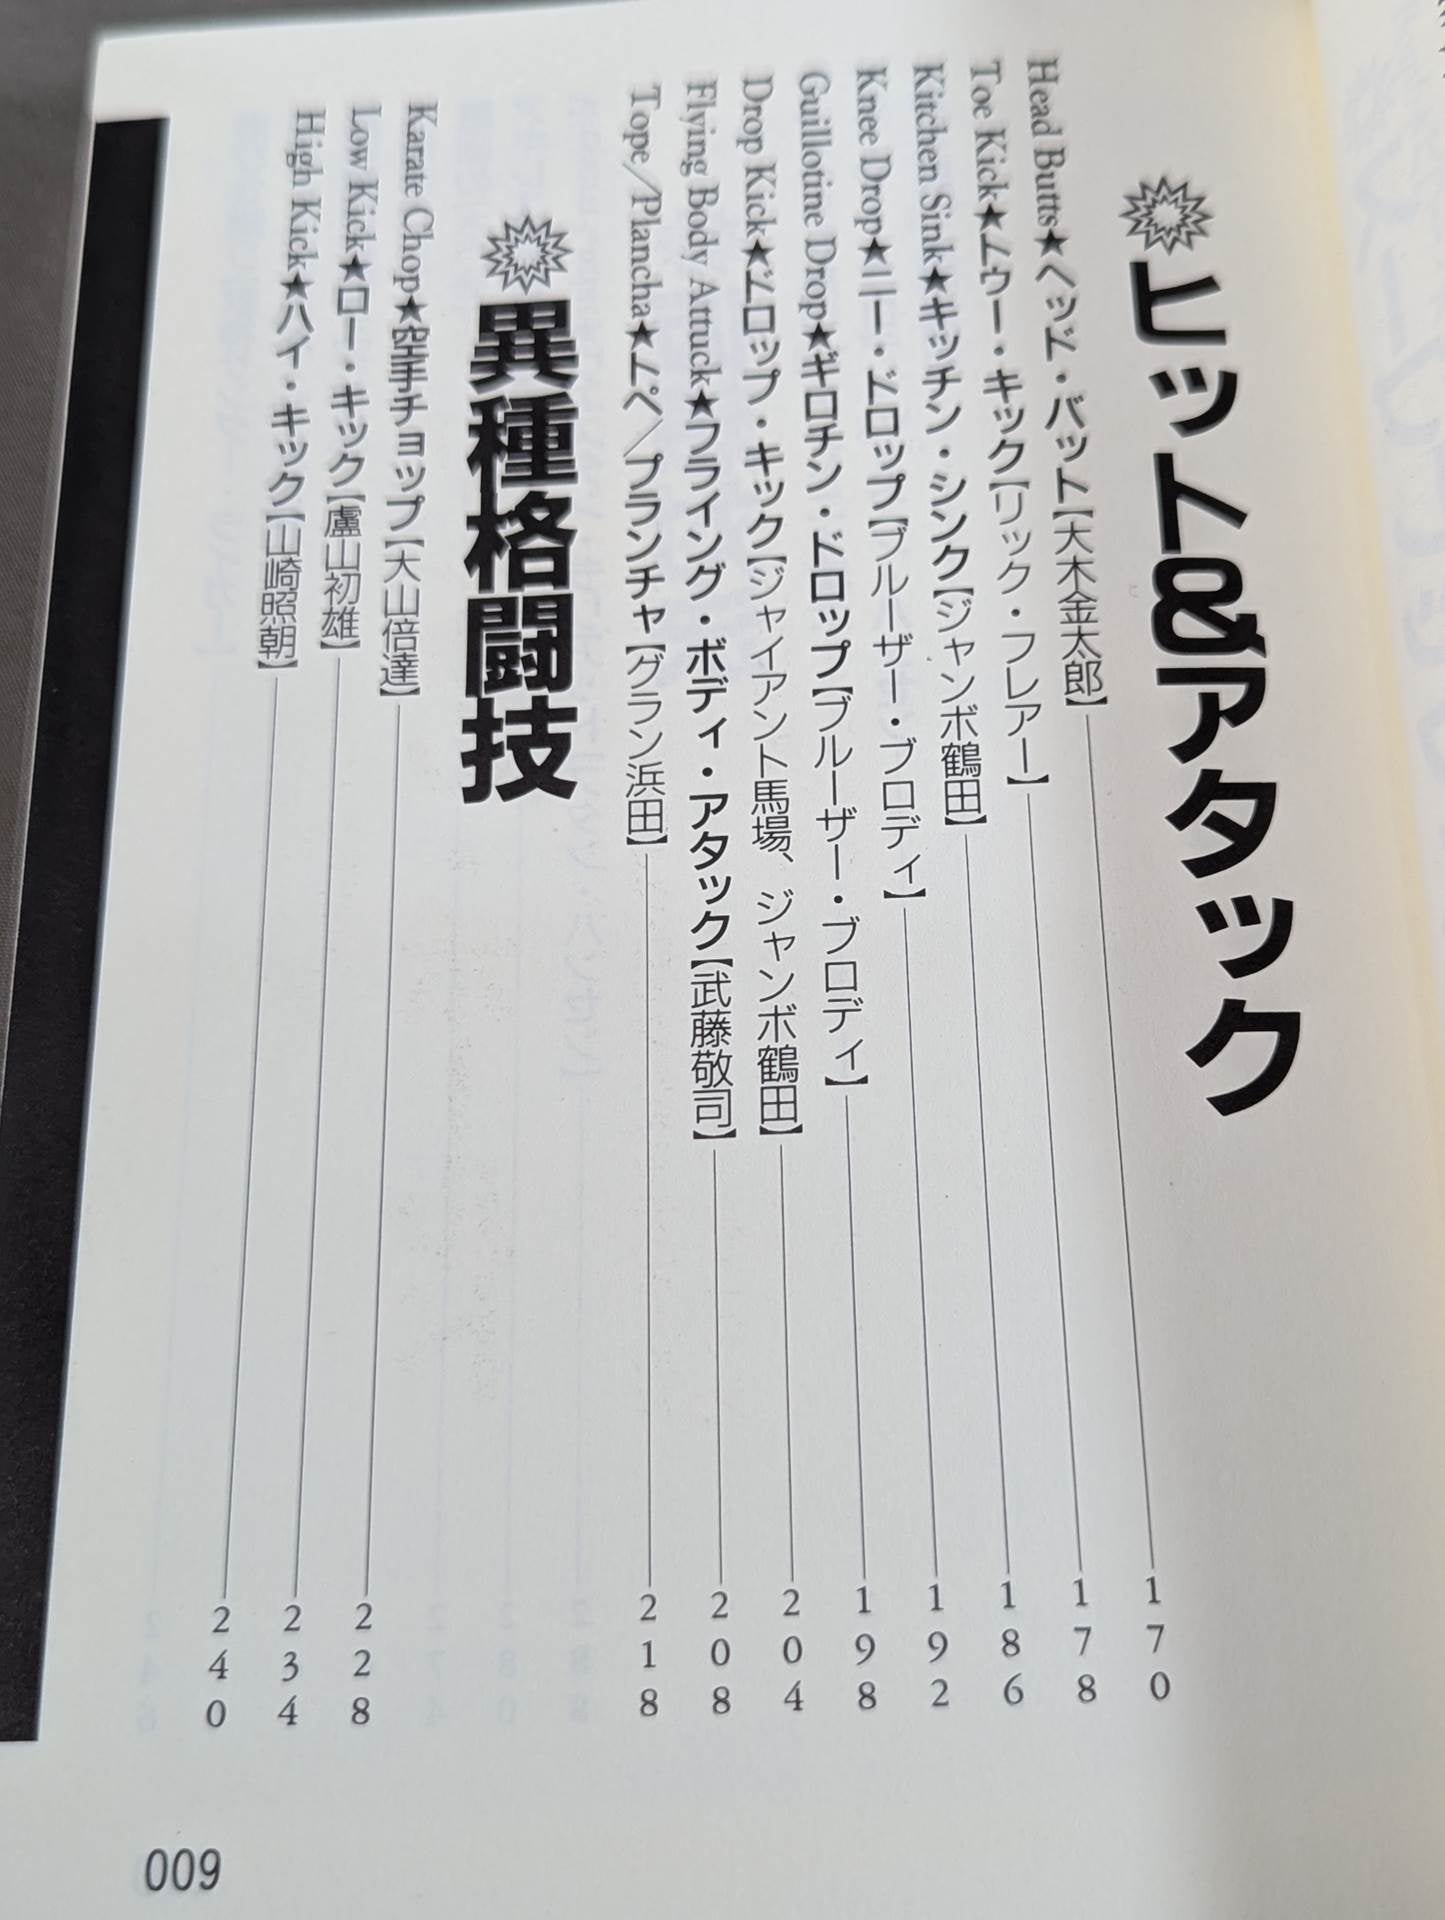 ヒット&アタック
Head Butts★ヘッド・バット【大木金太郎】 170
Toe Kick★トゥー・キック【リック・フレアー】 178
Kitchen Sink★キッチン・シンク【ジャンボ鶴田】 186
Knee Drop★ニー・ドロップ【ブルーザー・ブロディ】 192
Guillotine Drop★ギロチン・ドロップ【ブルーザー・ブロディ】 198
Drop Kick★ドロップ・キック【ジャイアント馬場、ジャンボ鶴田】 204
Flying Body Attuck★フライング・ボディ・アタック【武藤敬司】 208
Tope/Plancha★トペ/プランチャ【グラン浜田】 218
異種格闘技
Karate Chop★空手チョップ【大山倍達】 228
Low Kick★ロー・キック【盧山初雄】 234
High Kick★ハイ・キック【山崎照朝】 240
009